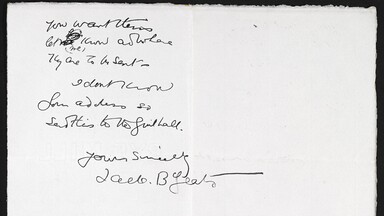 you want them
let me know and where
(me)
they are to be sent —
I dont know
your address so
send this to the Guildhall.
yours sincerely
Jack. B Yeats